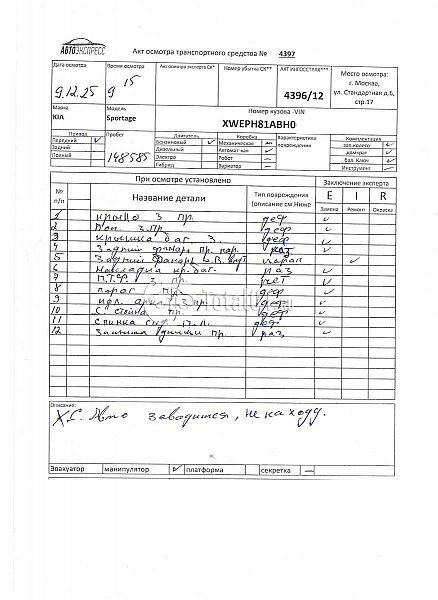 АВТОЭКСПРЕСС
Акт осмотра транспортного средства № 4397
Дата осмотра
Время осмотра
Акт осмотра эксперта СК*
Номер убытка СК**
АКТ ИНГОССТРАХ***
Место осмотра:
г. Москва,
ул. Стандартная д.6,
стр.17
9.12.25
9 15
4396/12
Марка
Модель
Номер кузова -VIN
KIA
Sportage
XWEPH81ABH0
Привод
Пробег
Двигатель
Коробка
Характеристика повреждения
Комплектация
Передний ✓
Бензиновый ✓
Механическая —
зап.колесо ✓
Задний
Дизельный
Автомат-кая ✓
домкрат ✓
Полный
148585
Электро
Робот —
бал. Ключ ✓
Гибрид
Вариатор —
Инструмент —
При осмотре установлено
Заключение эксперта
№ п/п
Название детали
Тип повреждения (описание см.Ниже
E I R
Замена Ремонт Окраска
1 крыло з пр. деф ✓
2 з.пр. деф ✓
3 крышка баг. з. деф ✓
4 Задний фонарь пр. нар. ✓
5 Задний фонарь ✓
6 Накладка кр. баг. раз ✓
7 П.Т.Ф з пр. ✓
8 порог пр. деф ✓
9 арка з пр. деф ✓
10 С стойка пр деф ✓
11 Спинка сид. деф ✓
12 пр. раз ✓
Описание:
Х.С. Авто заводится, не на ходу.
Эвакуатор манипулятор ✓ платформа секретка —